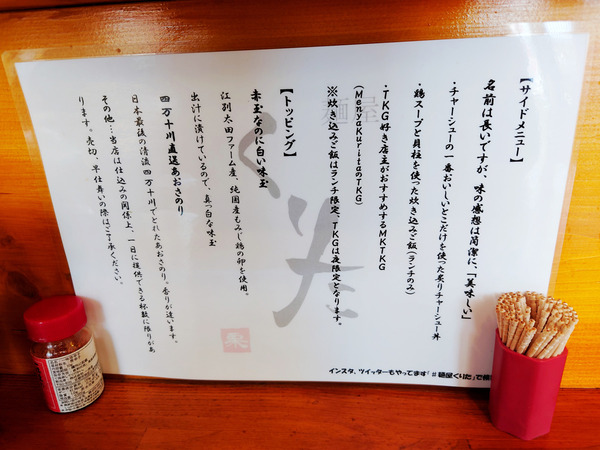 【サイドメニュー】
名前は長いですが、味の感想は簡潔に、「美味しい」
・チャーシューの一番おいしいとこだけを使った炙りチャーシュー丼
・鶏スープと貝柱を使った炊き込みご飯(ランチのみ)
・TKG好き店主がおすすめするMKTKG
(MenyaKuritaのTKG)
※炊き込みご飯はランチ限定、TKGは夜限定となります。
【トッピング】
赤玉なのに白い味玉
江別太田ファーム産、純国産もみじ鶏の卵を使用。
出汁に漬けているので、真っ白な味玉
四万十川直送あおさのり
日本最後の清流四万十川でとれたあおさのり。香りが違います。
その他…当店は仕込みの関係上、一日に提供できる杯数に限りがあ
ります。売切、早仕舞いの際はご了承ください。
麺屋
くりた
栗
インスタ、ツイッターもやってます!#麺屋くりたで検